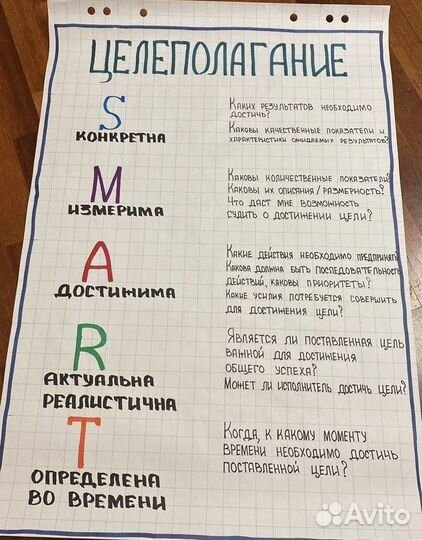 ЦЕЛЕПОЛАГАНИЕ
S
КОНКРЕТНА
КАКИХ РЕЗУЛЬТАТОВ НЕОБХОДИМО
ДОСТИЧЬ?
КАКОВЫ КАЧЕСТВЕННЫЕ ПОКАЗАТЕЛИ И
ХАРАКТЕРИСТИКИ ОЖИДАЕМЫХ РЕЗУЛЬТАТОВ?
M
ИЗМЕРИМА
КАКОВЫ КОЛИЧЕСТВЕННЫЕ ПОКАЗАТЕЛИ?
КАКОВЫ ИХ ОПИСАНИЯ / РАЗМЕРНОСТЬ?
ЧТО ДАСТ МНЕ ВОЗМОЖНОСТЬ
СУДИТЬ О ДОСТИЖЕНИИ ЦЕЛИ?
A
ДОСТИЖИМА
КАКИЕ ДЕЙСТВИЯ НЕОБХОДИМО ПРЕДПРИНЯТЬ
КАКОВА ДОЛЖНА БЫТЬ ПОСЛЕДОВАТЕЛЬНОСТЬ
ДЕЙСТВИЙ, КАКОВЫ ПРИОРИТЕТЫ?
КАКИЕ УСИЛИЯ ПОТРЕБУЕТСЯ СОВЕРШИТЬ
ДЛЯ ДОСТИЖЕНИЯ ЦЕЛИ?
R
АКТУАЛЬНА
РЕАЛИСТИЧНА
ЯВЛЯЕТСЯ ЛИ ПОСТАВЛЕННАЯ ЦЕЛЬ
ВАЖНОЙ ДЛЯ ДОСТИЖЕНИЯ
ОБЩЕГО УСПЕХА?
МОЖЕТ ЛИ ИСПОЛНИТЕЛЬ ДОСТИЧЬ ЦЕЛИ?
T
ОПРЕДЕЛЕНА
ВО ВРЕМЕНИ
КОГДА, К КАКОМУ МОМЕНТУ
ВРЕМЕНИ НЕОБХОДИМО ДОСТИЧЬ
ПОСТАВЛЕННОЙ ЦЕЛИ?
Avito